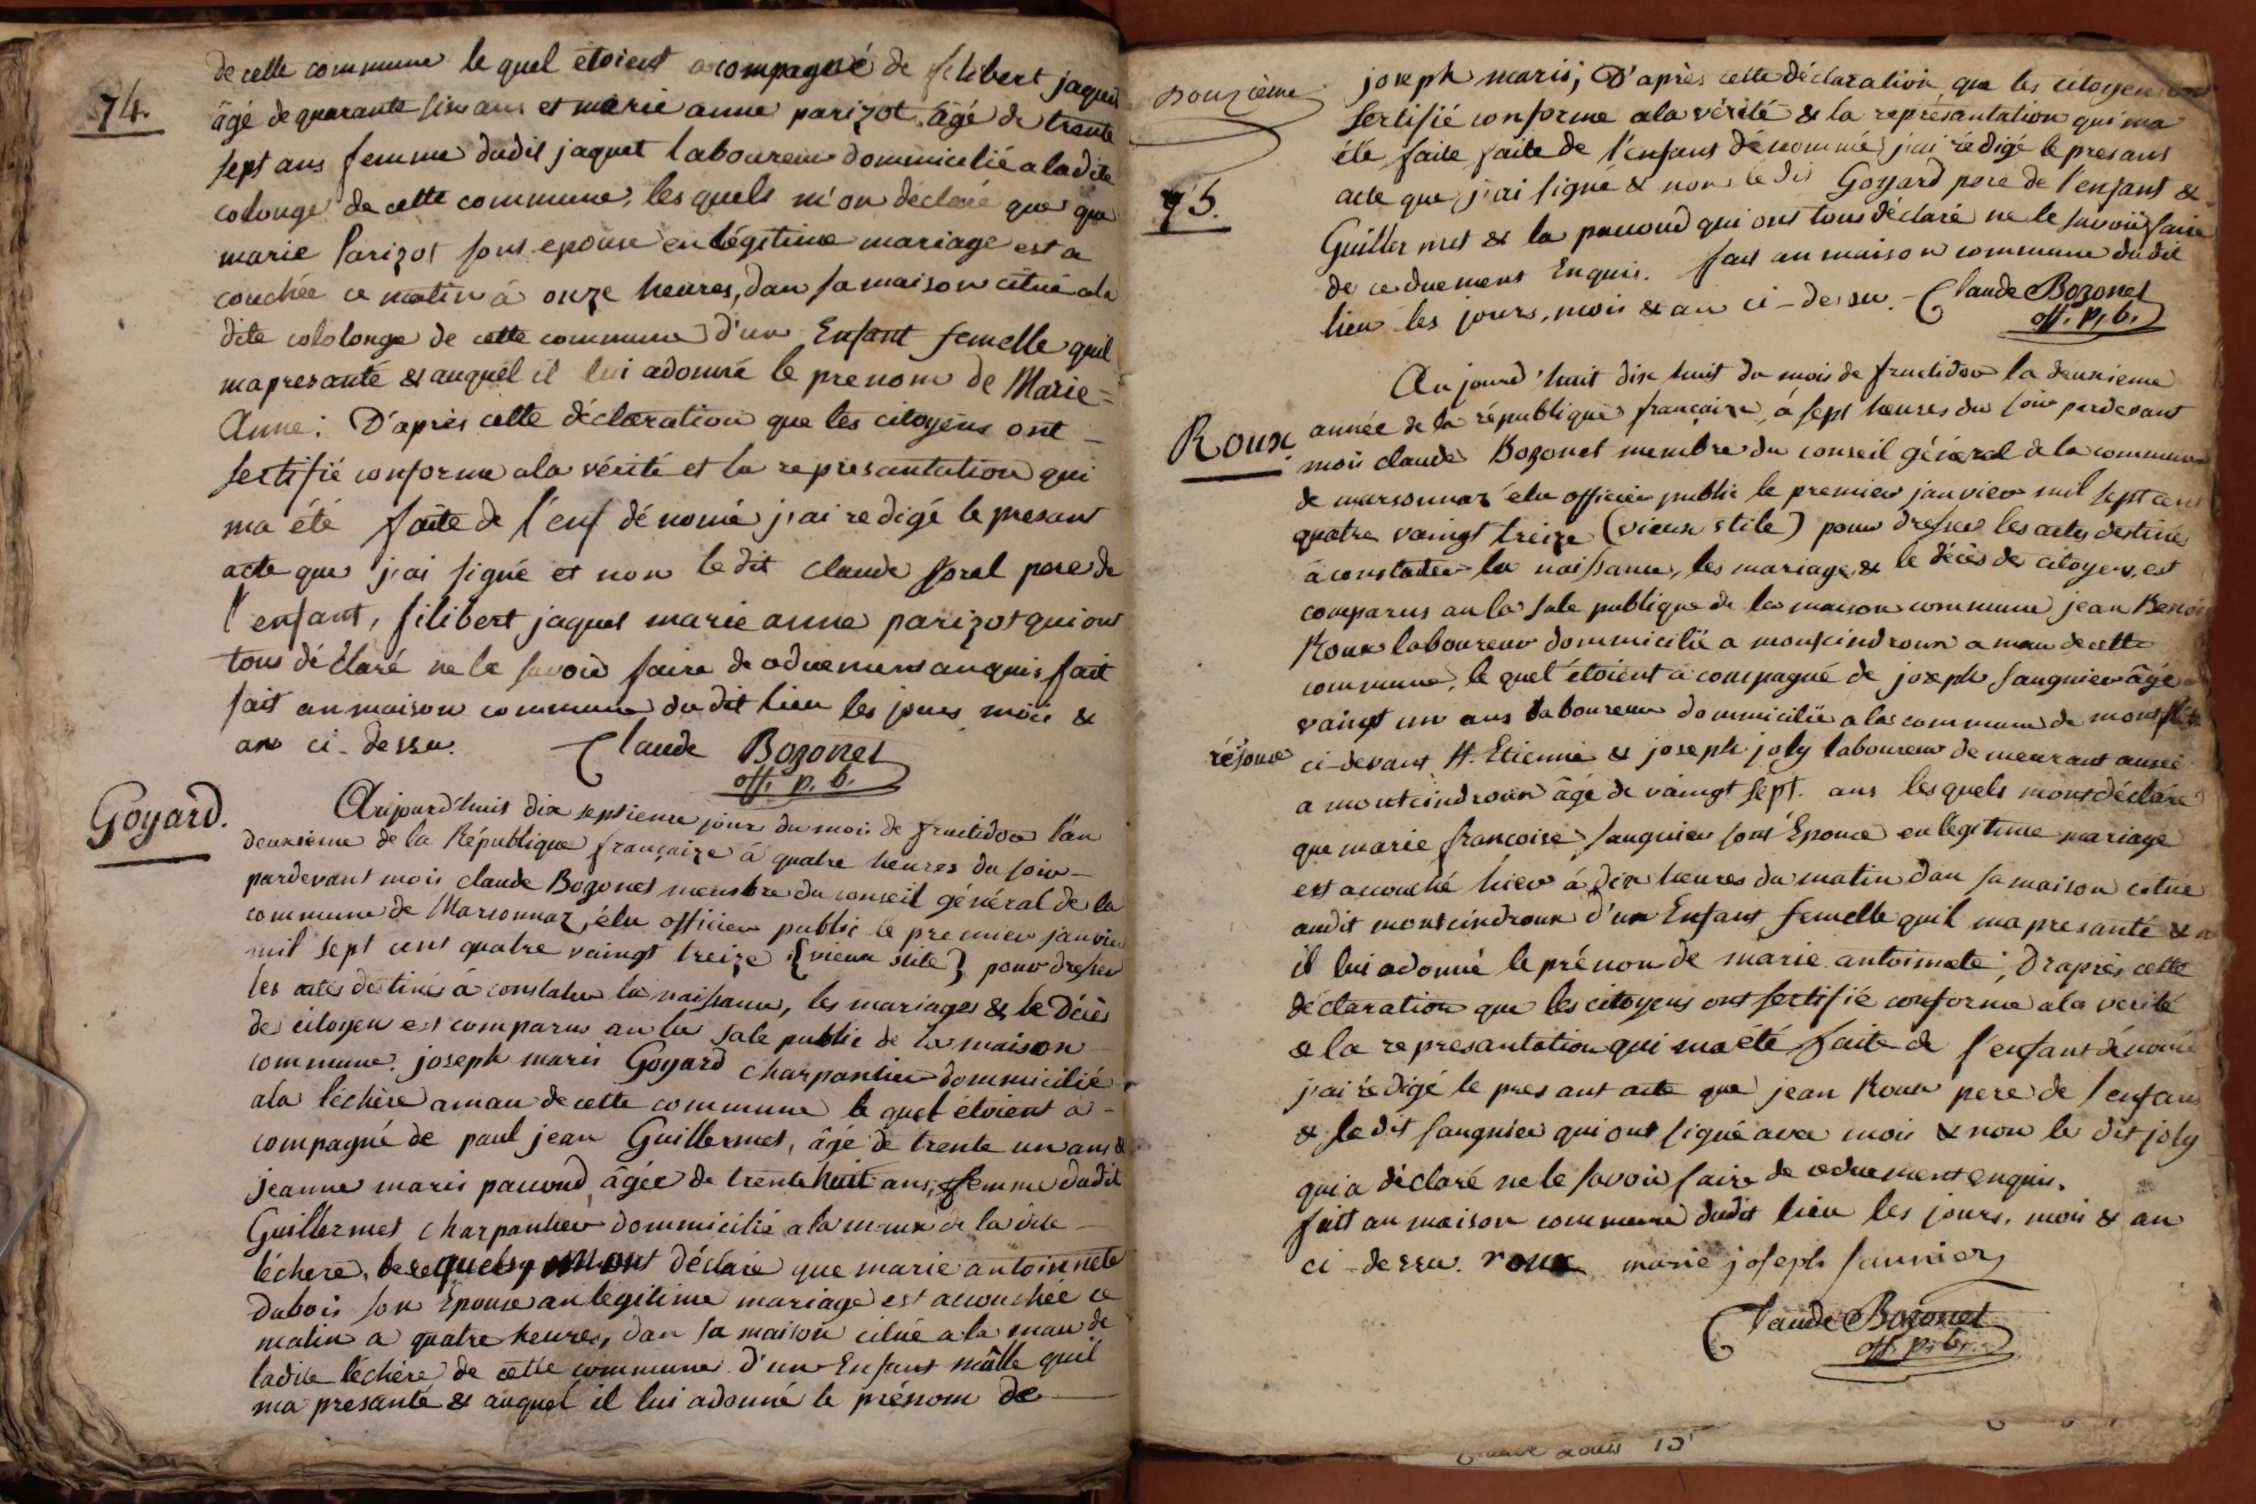 74.
de cette commune le quel etoient acompagné de filibert jaquet
âgé de quarante six ans et marie anne parizot âgé de trente
sept ans femme dudit jaquet laboureur dommicilié a ladite
colonge de cette commune, les quels m'on declaré que que
marie Parizot sont epouse en légitime mariage est a
couchée ce matin à onze heures, dan sa maison citué ala
dite cololonge de cette commune d'un Enfant femelle quil
ma presanté & auquel il lui adonné le prenom de Marie=
Anne; D'après cette déclaration que les citoyens ont
sertifié conforme ala vérité et la représantation qui
ma été faite de l'enf dénomé j'ai redigé le presant
acte que j'ai signé et non le dit claude sorel pere de
l'enfant, filibert jaquet marie anne parizot qui ont
tous déclaré ne le savoir faire de aduement anquis fait
fait an maison commune du dit lieu les jours mois &
an ci-dessu. Claude Bozonet
off. p. b.
Goyard.
Aujourd'huit dix septieme jour du mois de fructidor l'an
deuxsieme de la République françaize à quatre heures du soir
pardevant moi claude Bozonet membre du conseil général de la
commune de Marsonnaz, élu officier public le premier janvier
mil sept cent quatre vaingt treize {vieux stile} pour dresser
les actes destinés à constater la naissance, les mariages & le Décès
des citoyen est comparu an la sale public de la maison
commune. joseph marii Goyard charpantier dommicilié
ala léchère a mau de cette commune le quel étoient a
compagné de paul jean Guillermet, âgé de trente un ans &
jeanne marii pauoud, âgée de trente huit ans, femme dudit
Guillermet charpantier dommicilié ala maux de la dite
léchere, les quels mont déclaré que marie antoinnete
dubois son Epouse an legitime mariage est acouchée ce
matin a quatre heures, dan sa maison citué ala mau de
ladite léchère de cette commune d'un Enfant mâlle quil
ma presanté & auquel il lui adonné le prénom de
Douzième
75.
joseph marii; D'après cette déclaration que les citoyen ont
sertifié conforme ala vérité & la représantation qui ma
été faite faite de l'enfant dénommé j'ai rédigé le presant
acte que j'ai signé & non le dit Goyard pere de l'enfant &
Guillermet & la pauoud qui ont tous déclaré ne le savoir faire
de ce duement Enquis. fait an maison commune dudit
lieu les jours, mois & an ci-dessu. Claude Bozonet
off. p. b.
Roux.
Aujourd'huit dix huit du mois de fructidor la deuxieme
année de la république françaize, à sept heures du soir pardevant
moi claude Bozonet membre du conseil général de la commune
de marsonnaz élu officier public le premier janvier mil sept cent
quatre vaingt treize (vieux stile) pour dresser les actes destiné
à constater la naissance, les mariages & le décès des citoyens, est
comparus an la sale publique de la maison commune jean Benoi
Roux laboureur dommicilié a montcindroux a mau de cette
commune, le quel étoient acompagné de joseph sauguier âgé
vaingt un ans laboureur dommicilié a la commune de mont
réssouse ci-devant St. Etienne & joseph joly laboureur demeurant aussi
a montcindroux âgé de vaingt sept. ans les quels mont déclaré
que marie françoise sauguier sont Epouce en légitime mariage
est acouché hier à dix heures du matin dan sa maison citué
audit montcindroux d'un Enfant femelle quil ma presanté & a
il lui adonné le prénom de marie antoinnete; D'après cette
déclaration que les citoyens ont sertifié conforme ala vérité
& la représantation qui ma été faite de l'enfant dénomé
j'ai rédigé le presant acte que jean Roux pere de l'enfant
& le dit sauguier qui ont signé avec moi & non le dit joly
qui a déclaré ne le savoir faire de aduement enquis.
fait an maison commune dudit lieu les jours, mois & an
ci-dessu. roux marie joseph saunier
Claude Bozonet
off. p. b.